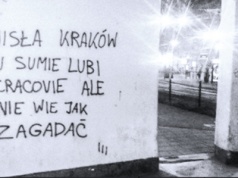 WISŁA KRAKÓW
W SUMIE LUBI
CRACOVIE ALE
NIE WIE JAK
ZAGADAĆ
!!!